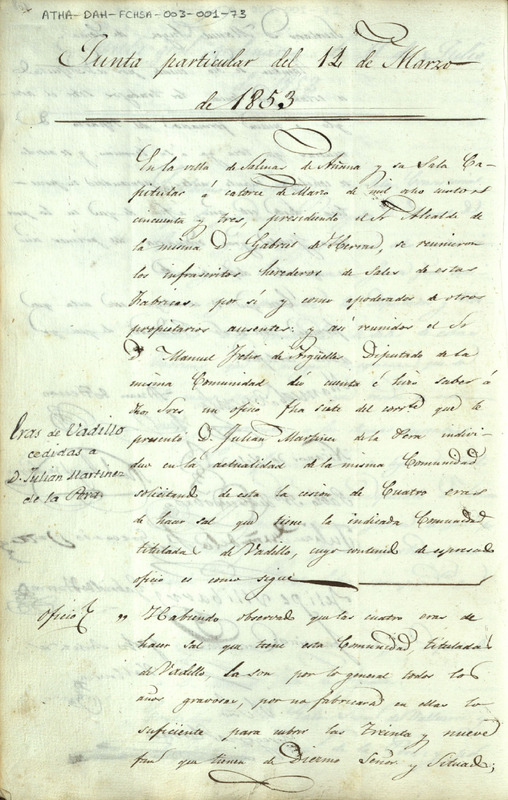 ATHA-DAH-FCHSA-003-001-73
Junta particular del 12 de Marzo
de 1853
En la villa de Salinas de Añana y su Sala Ca-
pitular á catorce de Marzo de mil ocho cientos
cincuenta y tres, presidiendo el Sr Alcalde de
la misma D. Gabriel de Herran, se reunieron
los infrascritos herederos de Sales de estas
Fabricas por sí y como apoderados de otros
propietarios ausentes: y asi reunidos el Sr
D. Manuel Felix de Argüelles Diputado de la
misma Comunidad dió cuenta é hizo saber á
dhos Sres un oficio fha siete del corrte que le
presentó D. Julian Martinez de la Pera indivi-
duo en la actualidad de la misma Comunidad
solicitando de esta la cesion de Cuatro eras
de hacer sal que tiene la indicada Comunidad
titulada de Vadillo, cuyo contenido de espresado
oficio es como sigue
Eras de Vadillo
cedidas a
D. Julian Martinez
de la Pera.
Oficio
„ Habiendo observado que las cuatro eras de
hacer sal que tiene esta Comunidad, tituladas
de Vadillo, la son por lo general todos los
años gravosas, por no fabricarse en ellas lo
suficiente para cubrir las Treinta y nueve
fans que tienen de Diezmo Señor y Situado;